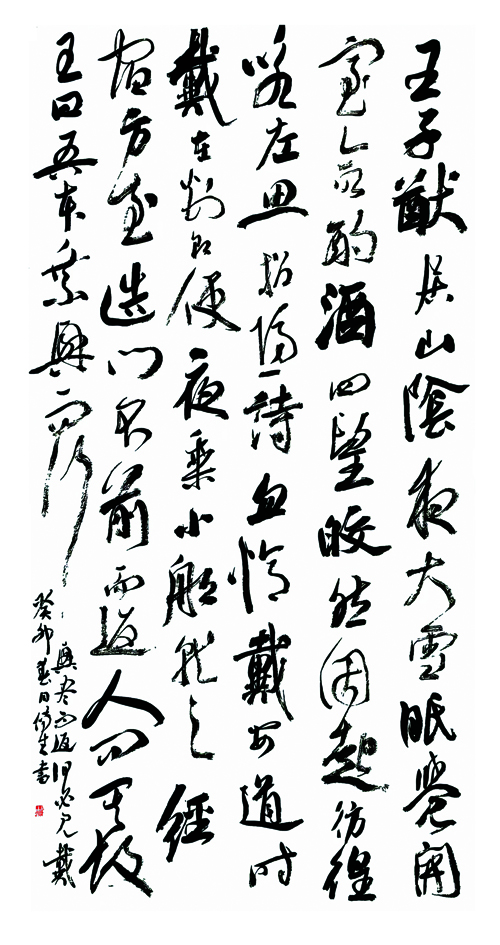 王子猷居山陰夜大雪眠覺開
室命酌酒四望皎然因起彷徨
詠左思招隱詩忽憶戴安道時
戴在剡即便夜乘小船就之經
宿方至造門不前而返人問其故
王曰吾本乘興而行
興盡而返何必見戴
癸卯春日書